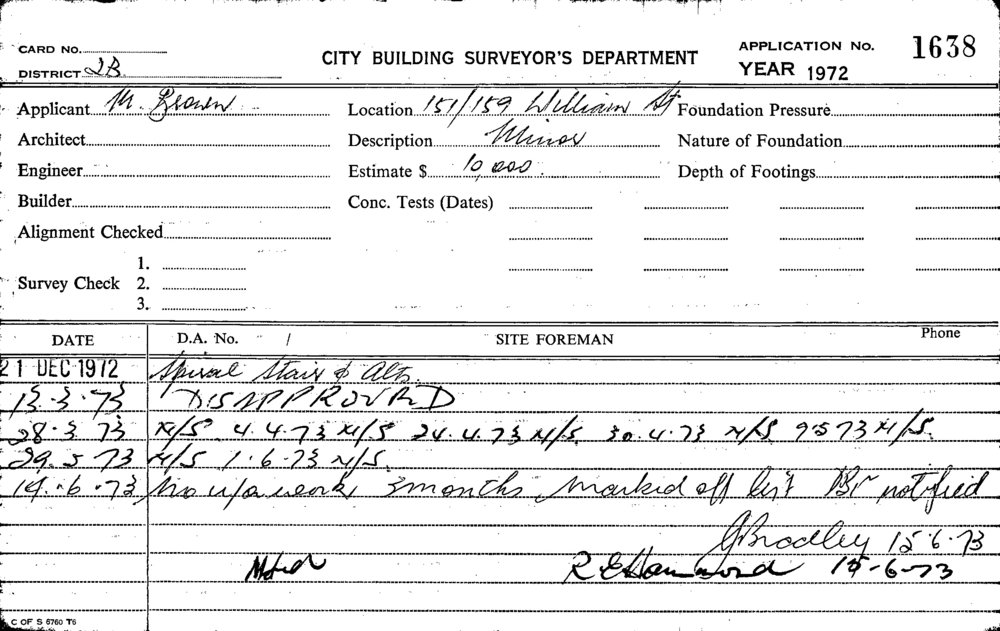 CARD NO.
DISTRICT 2B
CITY BUILDING SURVEYOR'S DEPARTMENT
APPLICATION No. 1638
YEAR 1972
Applicant M. Brown
Location 151/159 William St
Foundation Pressure
Architect
Description Minor
Nature of Foundation
Engineer
Estimate $ 10,000.
Depth of Footings
Builder
Conc. Tests (Dates)
Alignment Checked
Survey Check 1.
2.
3.
DATE D.A. No. / SITE FOREMAN Phone
21 DEC 1972 Spiral Stair & Alts.
13.3.73 DISAPPROVED
28.3.73 N/S 4.4.73 N/S 24.4.73 N/S. 30.4.73 N/S 9.5.73 N/S.
29.5.73 N/S 1.6.73 N/S.
14.6.73 No u/a work 3 months Marked off list notified
GBradley 15.6.73
R E Hammond 15-6-73
C OF S 6760 T6